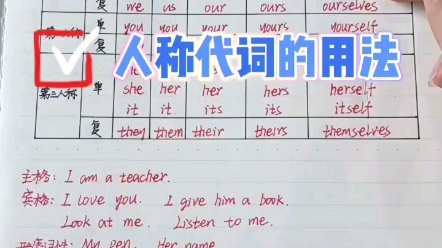 复 we us our ours ourselves
单 you you your yours yourself
复
人称代词的用法
第三人称 单 she her her hers herself
it it its its itself
复 they them their theirs themselves
主格: I am a teacher.
宾格: I love you. I give him a book.
Look at me. Listen to me.
My pen. Her name